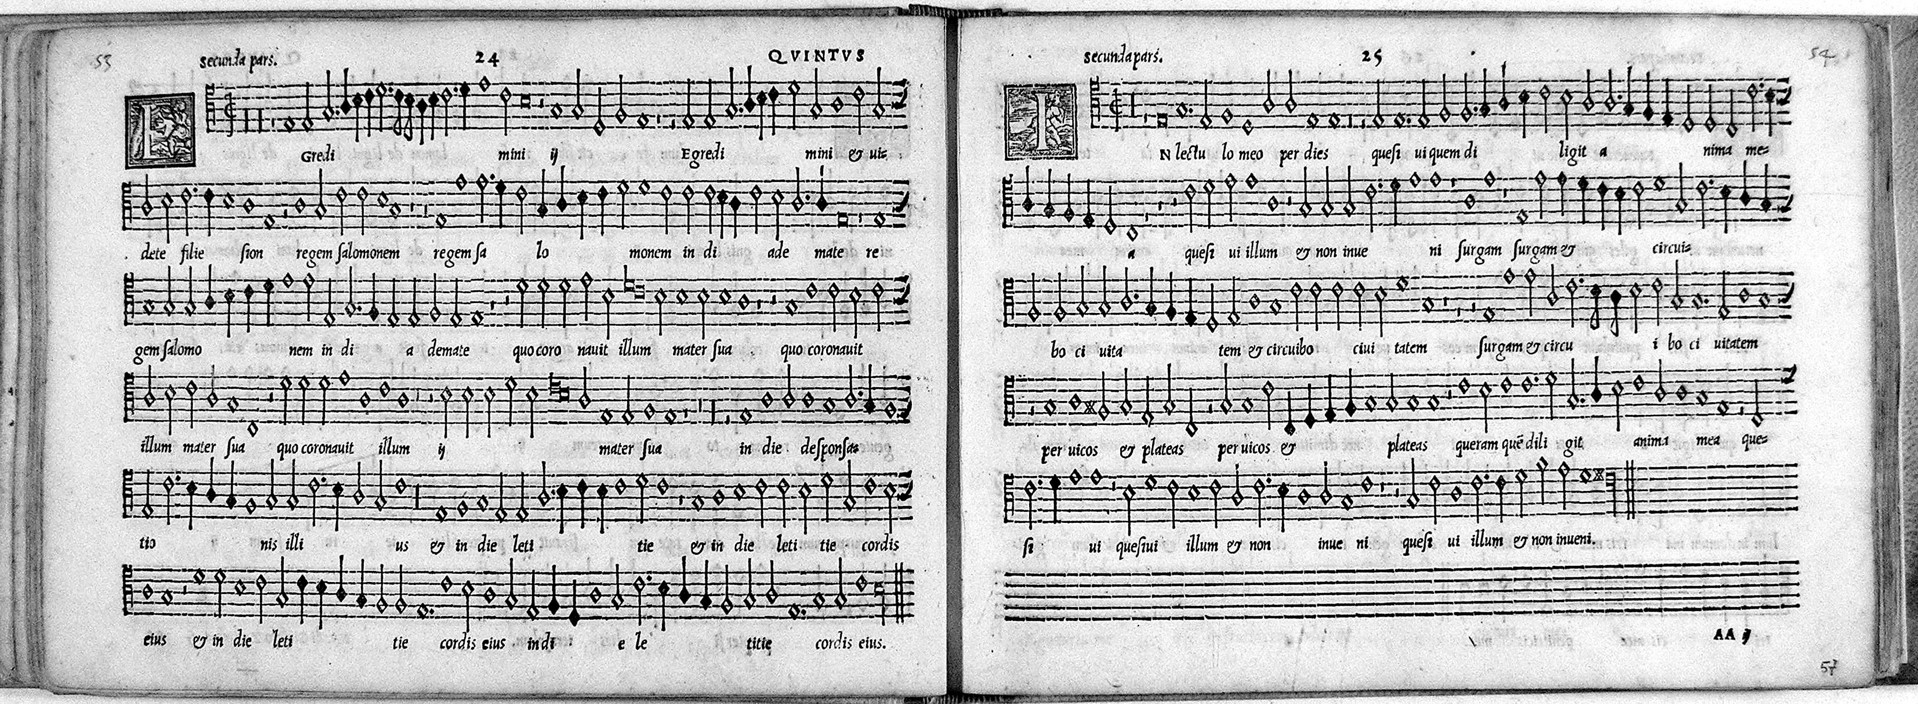 53
secunda pars. 24 QVINTVS
E Gredi mini ij Egredi mini & ui-
dete filie sion regem salomonem regem sa lo monem in di ade mate re-
gem salomo nem in di a demate quo coro nauit illum mater sua quo coronauit
illum mater sua quo coronauit illum ij mater sua in die desponsa-
tio nis illi us & in die leti tie & in die leti tie cordis
eius & in die leti tie cordis eius in di e le titie cordis eius.
secunda pars. 25 54
I N lectu lo meo per dies quesi ui quem di ligit a nima me-
a quesi ui illum & non inue ni surgam surgam & circui-
bo ci uita tem & circuibo ciui tatem surgam & circu i bo ci uitatem
per uicos & plateas per uicos & plateas queram quē dili git anima mea que-
si ui quesiui illum & non inue ni quesi ui illum & non inueni.
AA ij
57